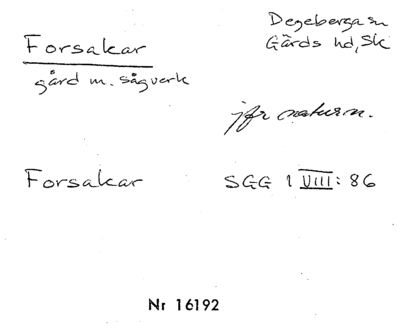 Forsakar
Degeberga sn
Gärds hd, Sk
gård m. sågverk
jfr naturn.
Forsakar
SGG 1 VIII: 86
Nr 16192